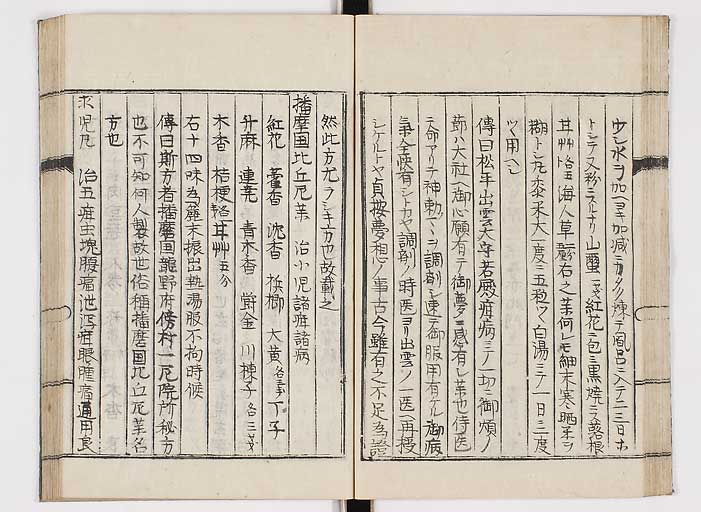 少シ水ヲ加ヘヨキ加減ニカタク煉テ風呂ニ入テ二三日ホ
トシテ又粉ニスヘシ 山 紅花ニ包ミ黒焼ニス
海人草 右之薬何レモ細末寒晒ヲ
糊トシ丸黍米大一度三五粒ツヽ白湯ニテ一日三度
ツヽ用ヘシ
傳曰松平出雲大守若殿疳病ニテ一切御煩ノ
節ハ大社ヘ御心願有テ御夢ニ感有レ薬也侍医
ニ命アリテ神勅ノコヲ調剤シ速ニ御服用有ケル御病
氣全快有シトカヤ調剤ノ時医ヨリ出雲ノ一医ヘ再授
シケルトヤ真按夢想ノ事古今雖有之不足為證
然此方尤ヨシキ方也故載之
播摩国比丘尼薬 治小児諸疳諸病
紅花 藿香 沈香 梹榔 大黄各 丁子
升麻 連堯 青木香 欝金 川楝子各三
木香 桔梗 甘艸五分
右十四味為麁末振出熱湯服不拘時候
傳曰斯方者播磨国龍野府傍村一尼院所秘方
也不可知何人製故世俗稱播磨国比丘尼薬名
方也
求児丸 治五疳虫塊腹痛泄瀉疳眼腫痛通用良